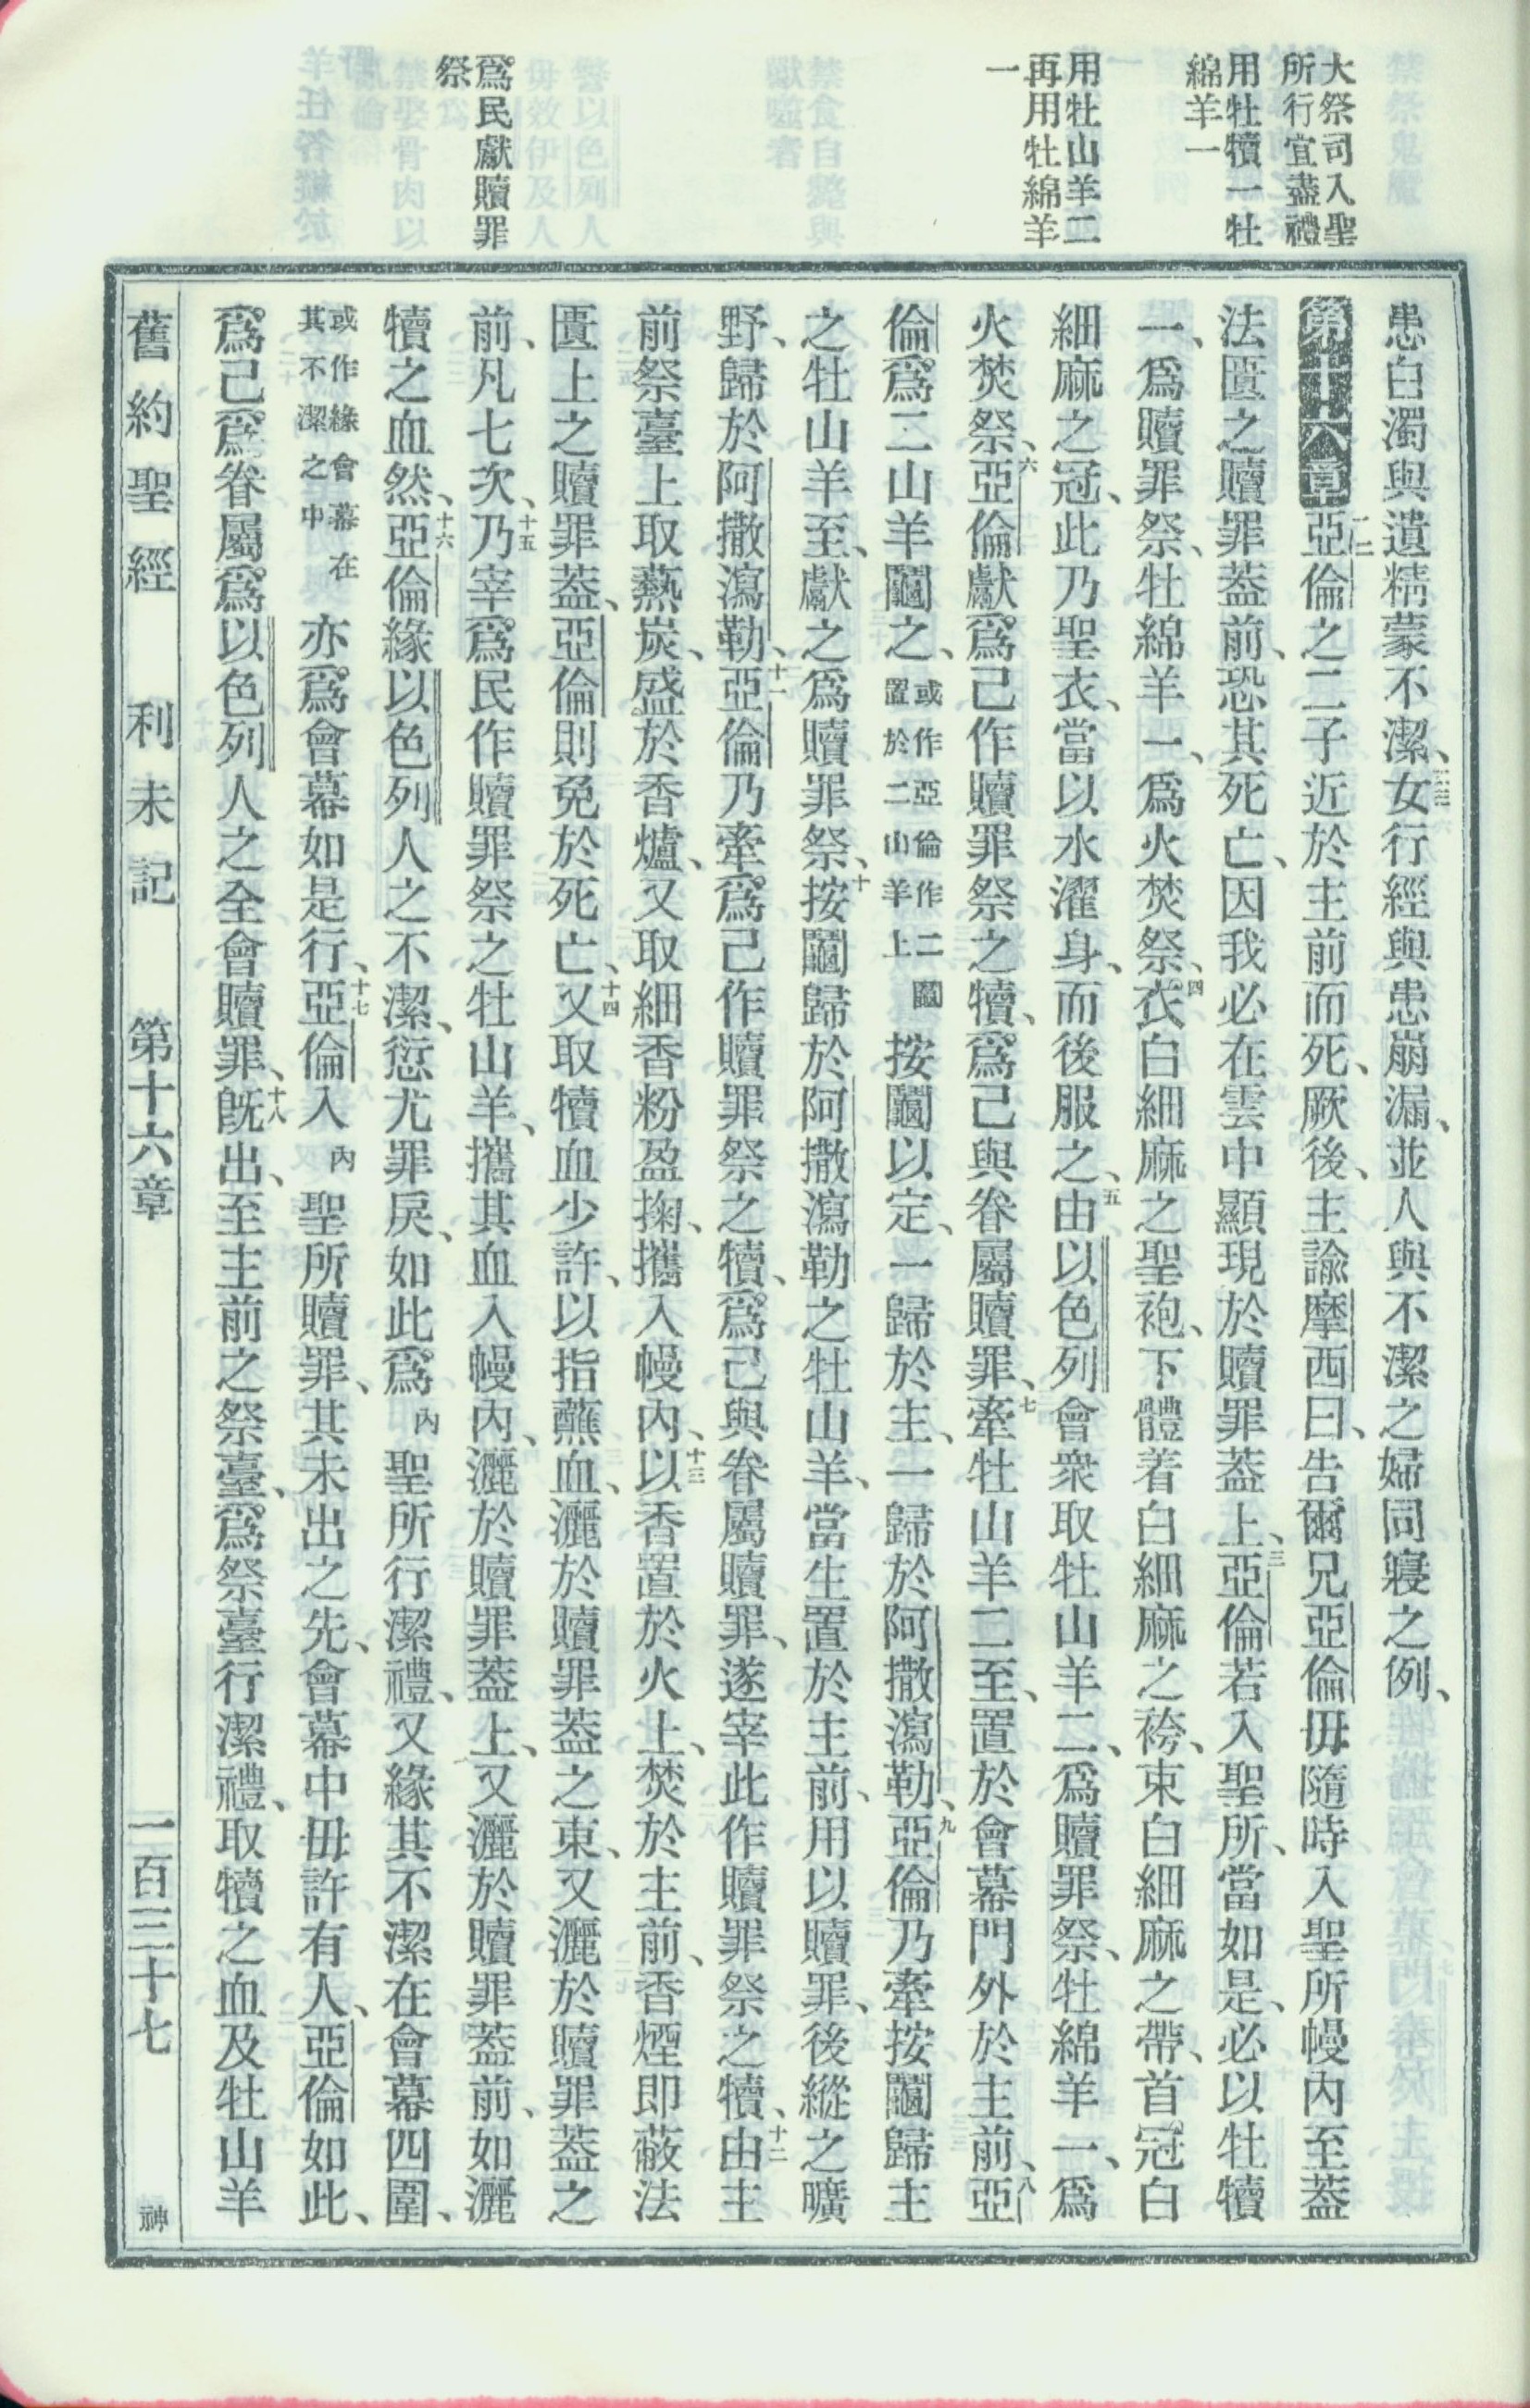 大祭司入聖
所行宜盡禮
用牡犢一牡
綿羊一
用牡山羊二
再用牡綿羊
一
爲民獻贖罪
祭
患白濁與遺精蒙不潔、三三女行經與患崩漏、並人與不潔之婦同寢之例、
第十六章一二亞倫之二子近於主前而死、厥後、主諭摩西曰、告爾兄亞倫毋隨時入聖所幔內至蓋
法匱之贖罪蓋前、恐其死亡、因我必在雲中顯現於贖罪蓋上、三亞倫若入聖所、當如是、必以牡犢
一、爲贖罪祭、牡綿羊一、爲火焚祭、四衣白細麻之聖袍、下體着白細麻之袴、束白細麻之帶、首冠白
細麻之冠、此乃聖衣、當以水濯身、而後服之、五由以色列會衆取牡山羊二、爲贖罪祭、牡綿羊一、爲
火焚祭、六亞倫獻爲己作贖罪祭之犢、爲己與眷屬贖罪、七牽牡山羊二至、置於會幕門外於主前、八亞
倫爲二山羊鬮之、或作亞倫作二鬮置於二山羊上按鬮以定、一歸於主、一歸於阿撒瀉勒、九亞倫乃牽按鬮歸主
之牡山羊至、獻之爲贖罪祭、十按鬮歸於阿撒瀉勒之牡山羊、當生置於主前、用以贖罪、後縱之曠
野、歸於阿撒瀉勒、十一亞倫乃牽爲己作贖罪祭之犢、爲己與眷屬贖罪、遂宰此作贖罪祭之犢、十二由主
前祭臺上取爇炭、盛於香爐、又取細香粉盈掬、攜入幔內、十三以香置於火上、焚於主前、香煙即蔽法
匱上之贖罪蓋、亞倫則免於死亡、十四又取犢血少許、以指蘸血、灑於贖罪蓋之東、又灑於贖罪蓋之
前、凡七次、十五乃宰爲民作贖罪祭之牡山羊、攜其血入幔內、灑於贖罪蓋上、又灑於贖罪蓋前、如灑
犢之血然、十六亞倫緣以色列人之不潔、愆尤罪戾、如此爲內聖所行潔禮、又緣其不潔在會幕四圍、
或作緣會幕在其不潔之中亦爲會幕如是行、十七亞倫入內聖所贖罪、其未出之先、會幕中毋許有人、亞倫如此、
爲己爲眷屬爲以色列人之全會贖罪、十八旣出、至主前之祭臺、爲祭臺行潔禮、取犢之血及牡山羊
舊約聖經　利未記　第十六章　一百三十七　神